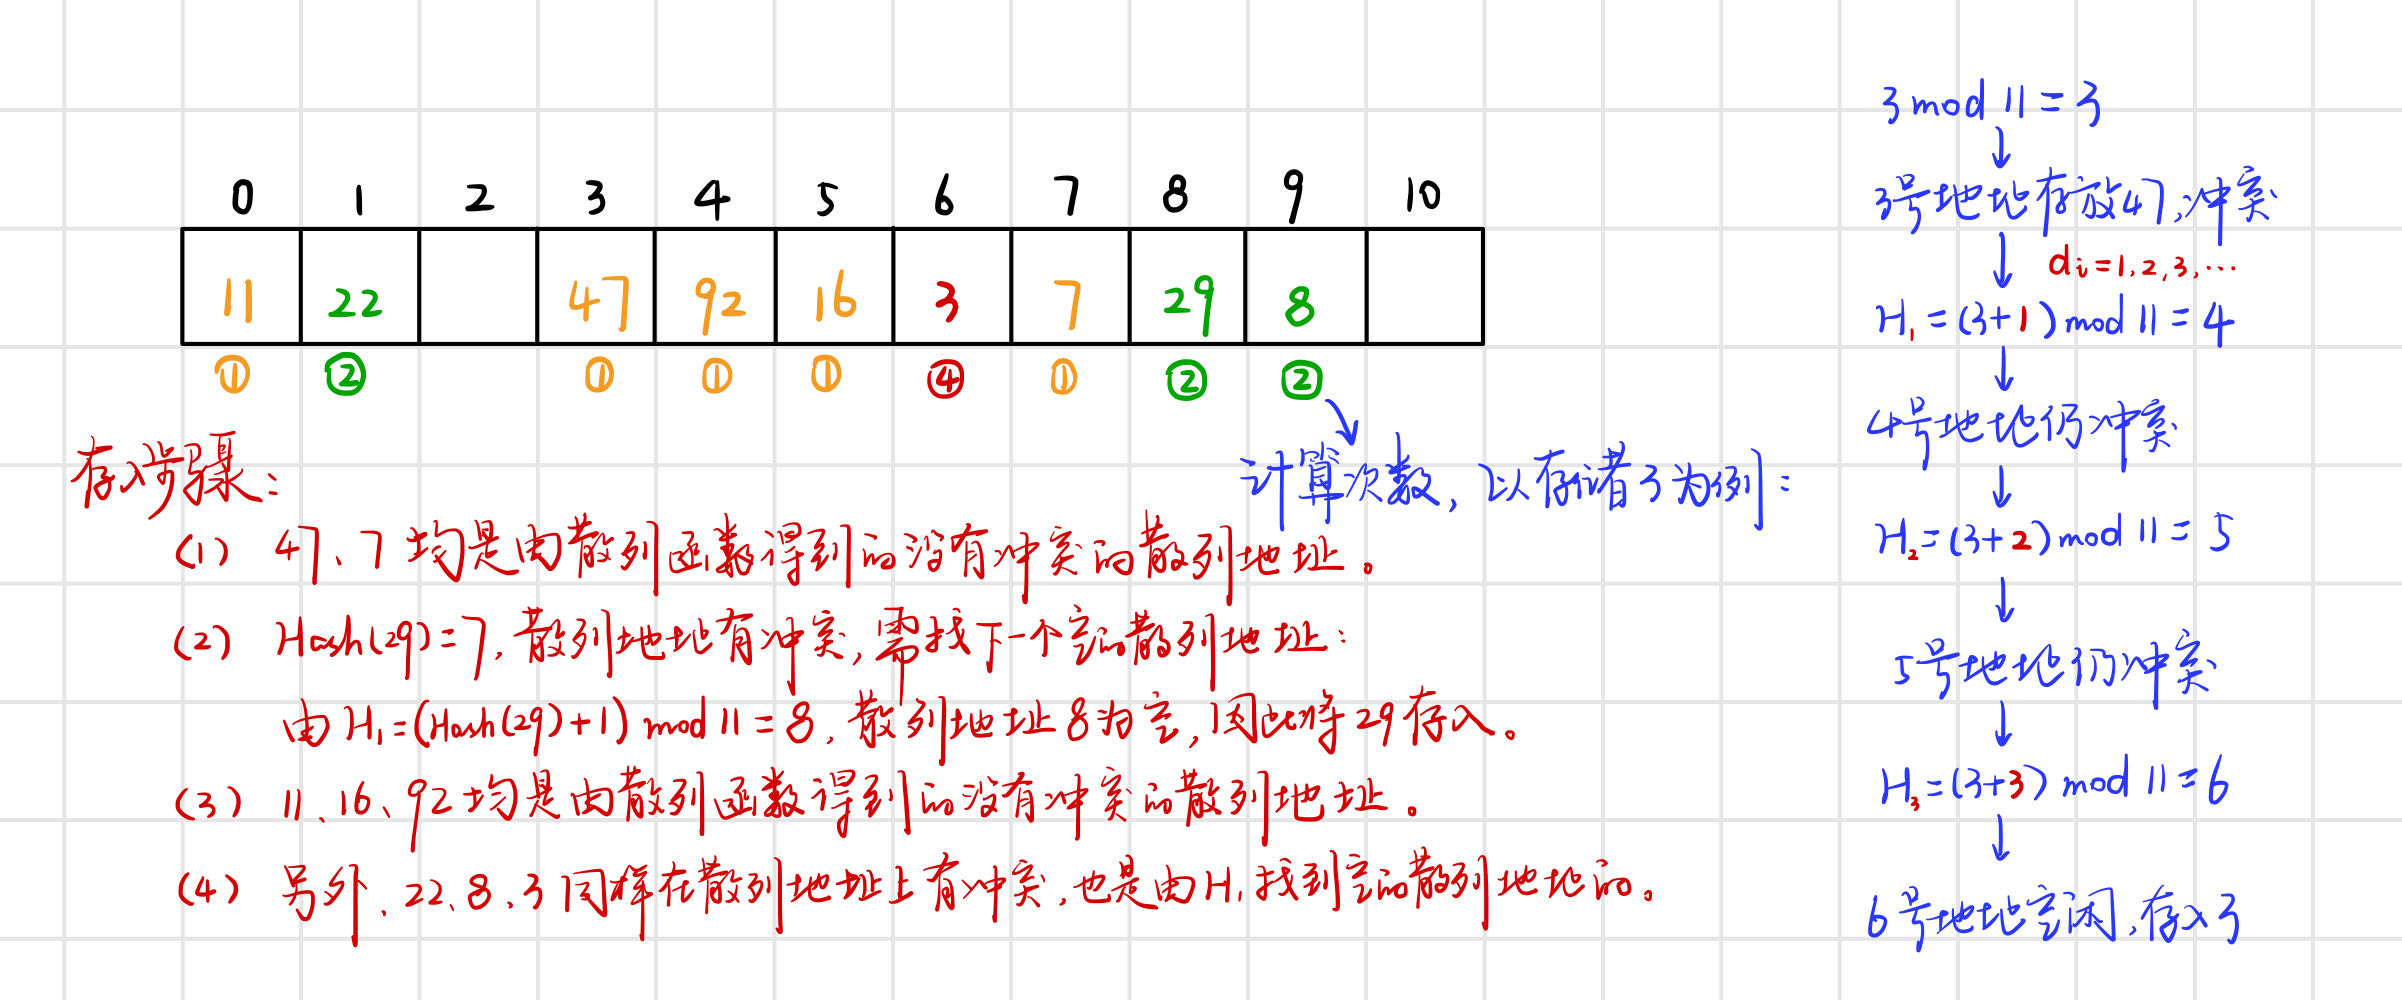 0 1 2 3 4 5 6 7 8 9 10
11 22 47 92 16 3 7 29 8
① ② ① ① ① ④ ① ② ②
存入步骤:
(1) 47、7均是由散列函数得到的没有冲突的散列地址。
(2) Hash(29)=7,散列地址有冲突,需找下一个空的散列地址:
由H₁=(Hash(29)+1) mod 11=8,散列地址8为空,因此将29存入。
(3) 11、16、92均是由散列函数得到的没有冲突的散列地址。
(4) 另外、22、8、3同样在散列地址上有冲突,也是由H₁找到空的散列地址的。
计算次数,以存储3为例:
3 mod 11=3
3号地址存放47,冲突
di=1,2,3,…
H₁=(3+1) mod 11=4
4号地址仍冲突
H₂=(3+2) mod 11=5
5号地址仍冲突
H₃=(3+3) mod 11=6
6号地址空闲,存入3